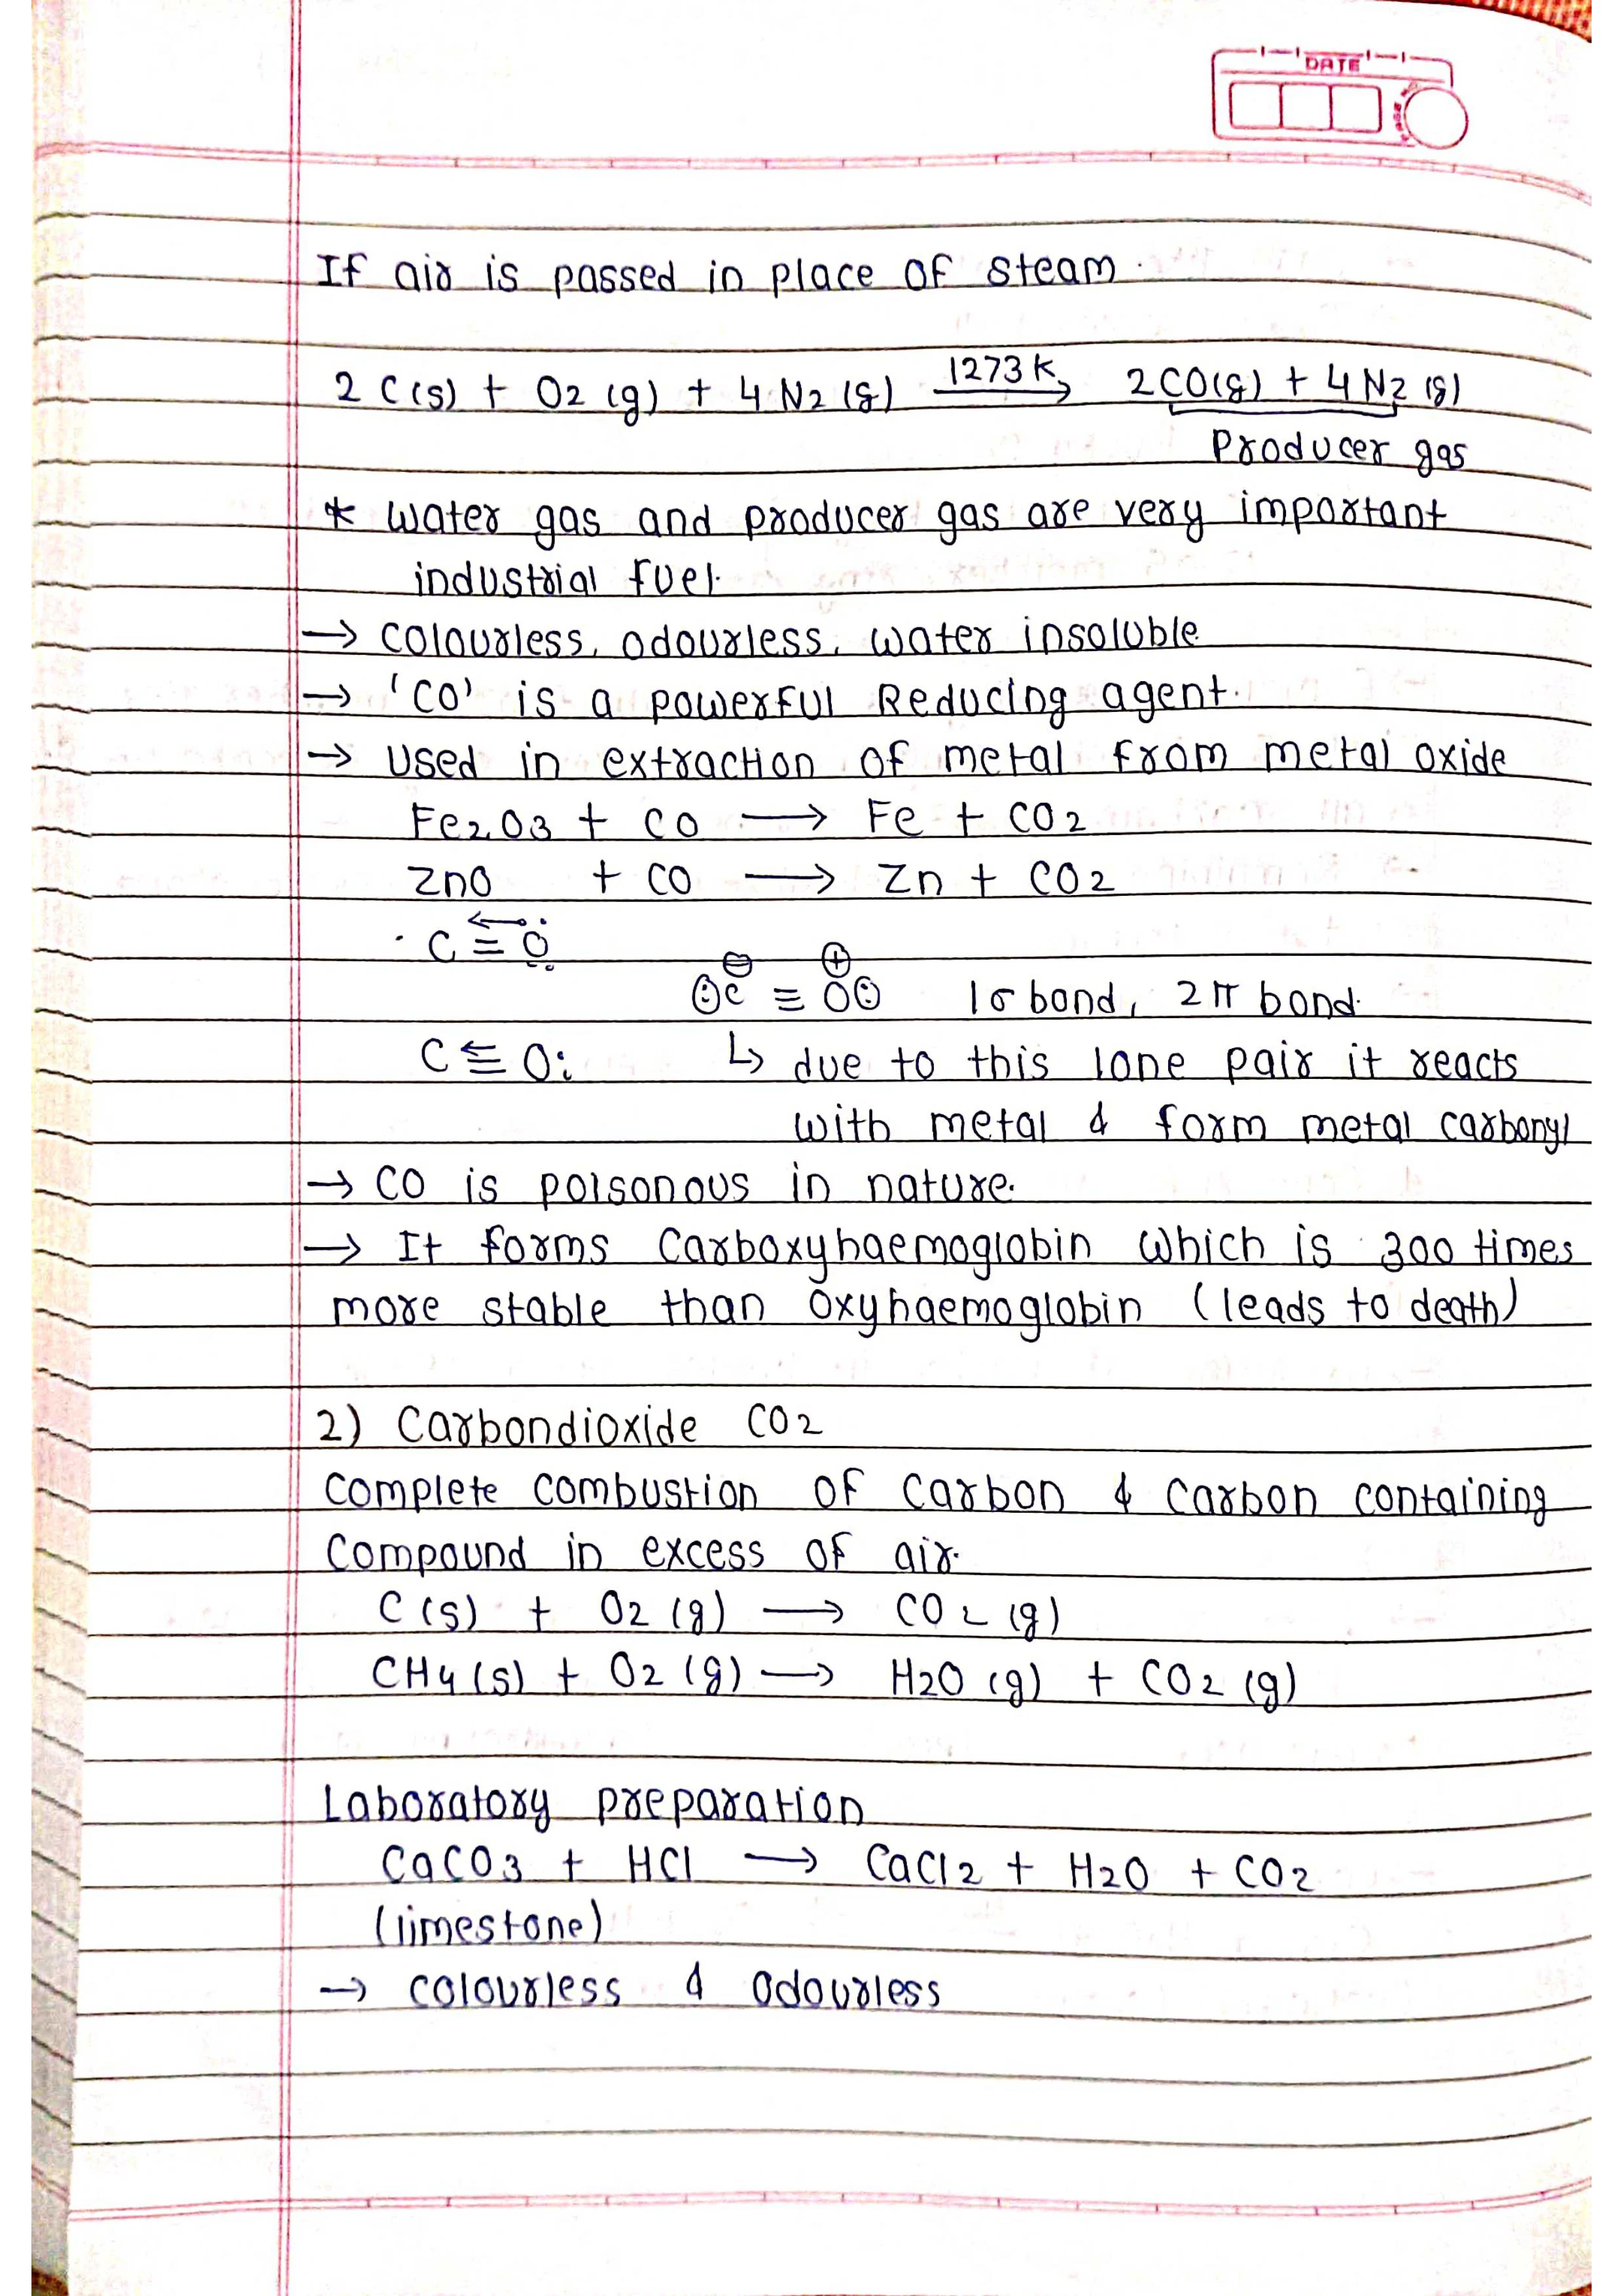 DATE
If air is passed in place of steam.
2 C(s) + O2 (g) + 4 N2 (g) 1273 K → 2 CO(g) + 4 N2 (g)
Producer gas
* water gas and producer gas are very important
industrial fuel.
→ colourless, odourless, water insoluble
→ 'CO' is a powerful Reducing agent.
→ Used in extraction of metal from metal oxide
Fe2O3 + CO → Fe + CO2
ZnO + CO → Zn + CO2
C ≡ O
⊖ ⊕
:C ≡ O: 1σ bond, 2π bond.
C ≡ O: ↳ due to this lone pair it reacts
with metal & form metal carbonyl
→ CO is poisonous in nature.
→ It forms Carboxyhaemoglobin which is 300 times
more stable than oxyhaemoglobin (leads to death)
2) Carbondioxide CO2
Complete combustion of carbon & carbon containing
compound in excess of air.
C(s) + O2 (g) → CO2 (g)
CH4 (s) + O2 (g) → H2O (g) + CO2 (g)
Laboratory preparation
CaCO3 + HCl → CaCl2 + H2O + CO2
(limestone)
→ colourless & odourless